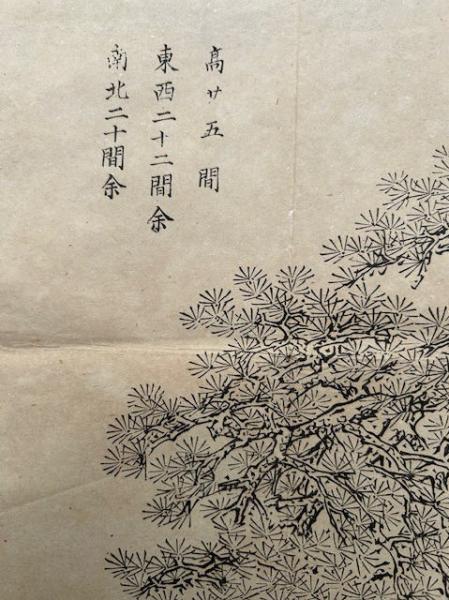 高廿五間
東西二十二間余
南北二十間余